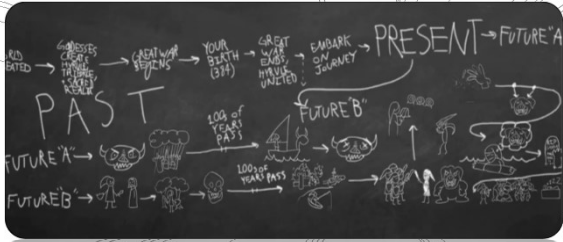 RLD
EATED
GODESSES
CREATE
HYRULE
TRIFORCE
+ SACRED
REALM
GREAT WAR
BEGINS
YOUR
BIRTH
GREAT
WAR
ENDS,
HYRULE
UNITED
EMBARK
ON
JOURNEY
PRESENT
FUTURE "A"
PAST
100s OF
YEARS
PASS
FUTURE "B"
FUTURE "A"
FUTURE "B"
100s OF
YEARS PASS